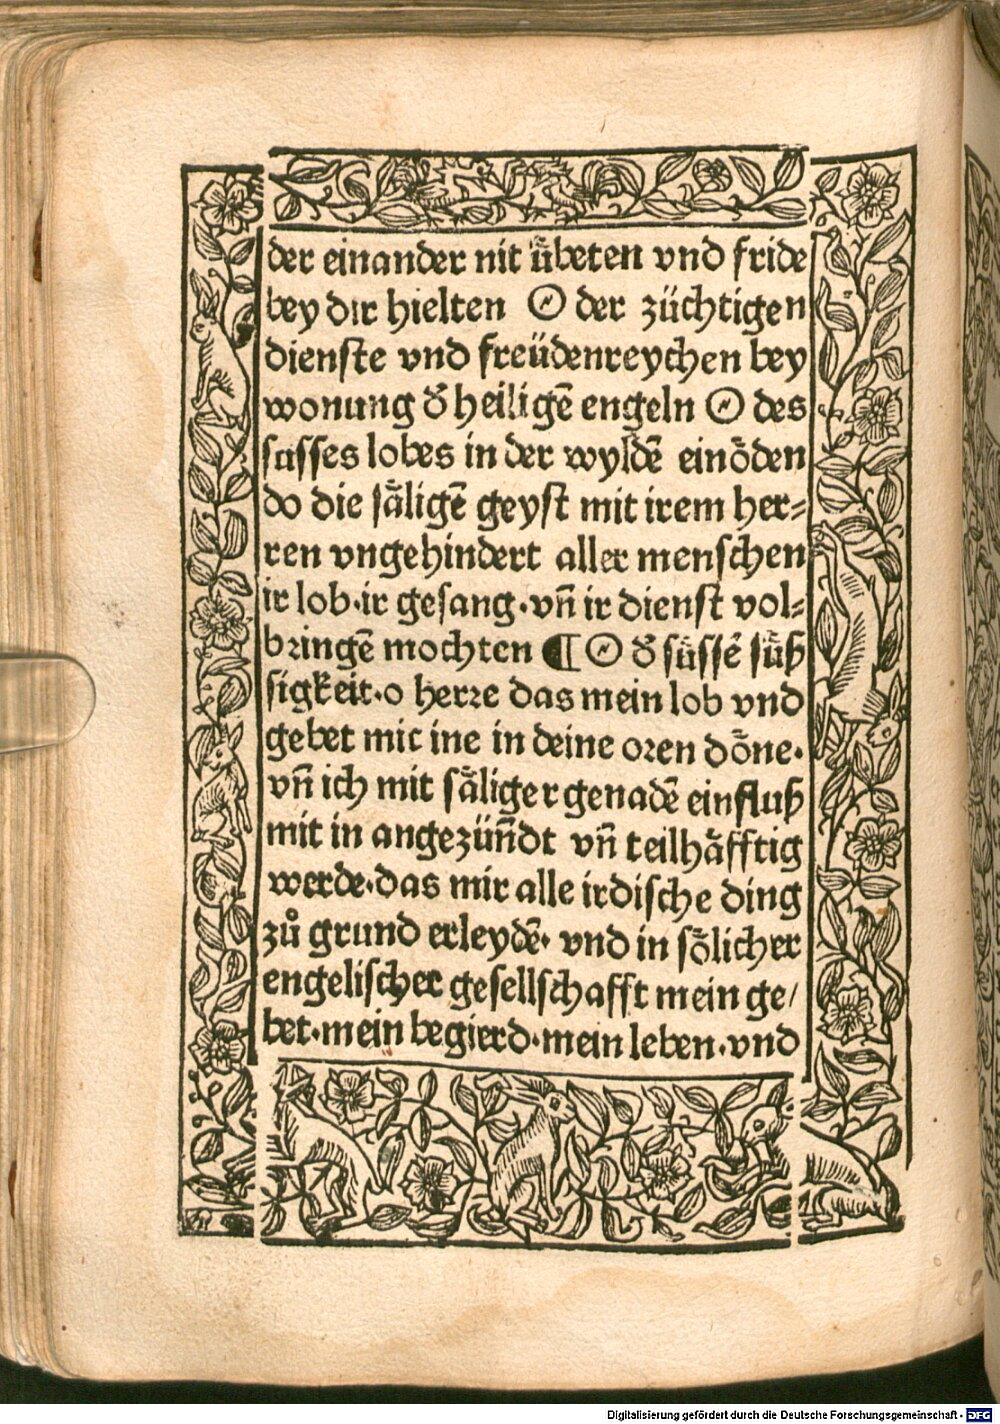 der einander nit ŭ̈beten vnd fride
bey dir hielten O der züchtigen
dienste vnd freüdenreychen bey
wonung d̕ heiligē engeln O des
susses lobes in der wyldē einöden
do die säligē geyst mit irem her⸗
ren vngehindert aller menschen
ir lob·ir gesang·vn̄ ir dienst vol⸗
bringē mochten ¶ O d̕ süssē süß
sigkeit·o herre das mein lob vnd
gebet mit ine in deine oren döne·
vn̄ ich mit säliger genadē einfluß
mit in angezün̄dt vn̄ teilhäfftig
werde·das mir alle irdische ding
zů grund erleydē· vnd in sölicher
engelischer gesellschafft mein ge/
bet·mein begierd·mein leben·vnd
Digitalisierung gefördert durch die Deutsche Forschungsgemeinschaft - DFG